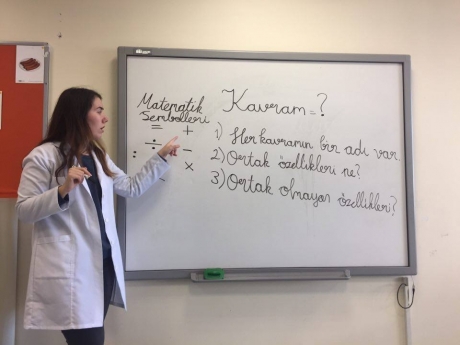 Matematik
Sembolleri
= +
÷ -
: x
Kavram = ?
1) Her kavramın bir adı var.
2) Ortak özellikleri ne?
3) Ortak olmayan özellikleri?